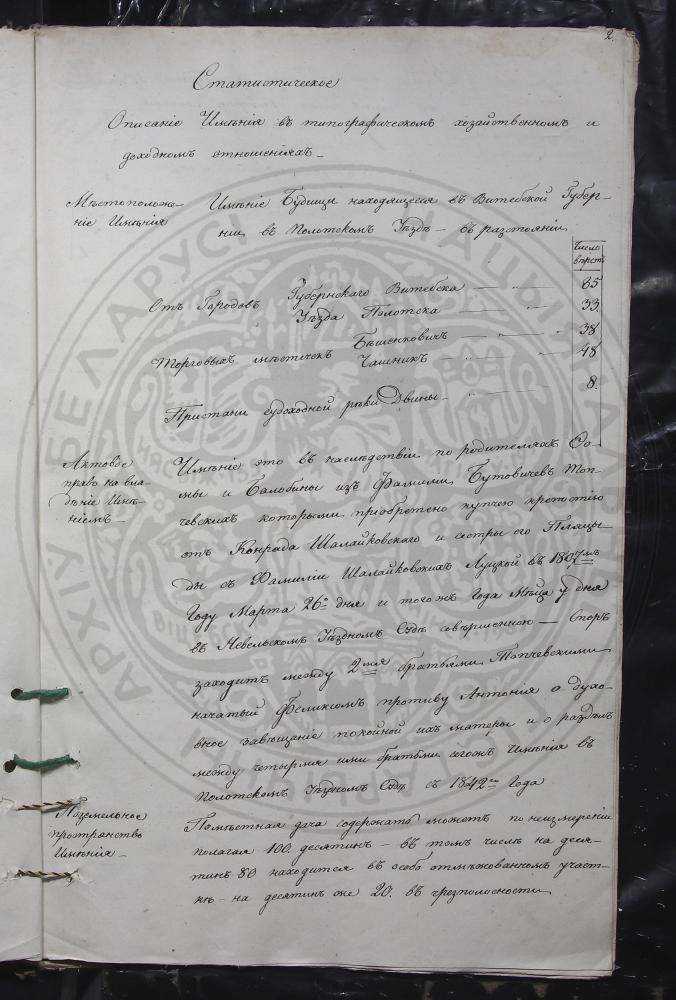 2.
Статистическое
Описаніе Имѣнія въ типографическомъ хозяйственномъ и
доходномъ отношеніяхъ –
Мѣстоположе-
ніе Имѣнія
Имѣніе Будищи находящееся въ Витебской Губер-
ніи, въ Полотскомъ Уѣздѣ – въ разстояніи
Число
верстъ
Отъ Городовъ Губернскаго Витебска — „ — 85
Уѣзда Полотска — „ — 33.
Торговыхъ мѣстечекъ Бѣшенковичъ — „ — 38
Чашникъ — „ — „ 48
Пристани судоходной рѣки Двины – „ — 8.
Актовое
право на вла-
дѣніе Имѣ-
ніемъ –
Имѣніе это въ наслѣдствіи по родителяхъ Ѳо-
мы и Балбины изъ Фамиліи Бутовичевъ Топ-
чевскихъ которыми приобретено купчею крепостію
отъ Конрада Шалайковскаго и сестры его Пляцы-
ды съ Фамиліи Шалайковскихъ Луцкой въ 1807мъ
Году Марта 26о дня и тогожъ Года Мѣца 9 дня
въ Невельскомъ Уѣздномъ Судѣ совѣршенною – Споръ
заходитъ между 2мя братьями Топчевскими
начатый Феликсомъ противу Антонія о духо-
вное завѣщаніе покойной ихъ матеры и о раздѣлъ
между четырмя ими братьми сегожъ Имѣнія въ
Полотскомъ Уѣздномъ Судѣ съ 1842го Года
Поземельное
пространство
Имѣнія –
Помѣстная дача содержать можетъ по неизмереніи
полагая 100 десятинъ – въ томъ числѣ на деся-
тинъ 80 находится въ особо отмѣжованномъ участ-
кѣ – на десятинъ же 20. въ чрезполосности